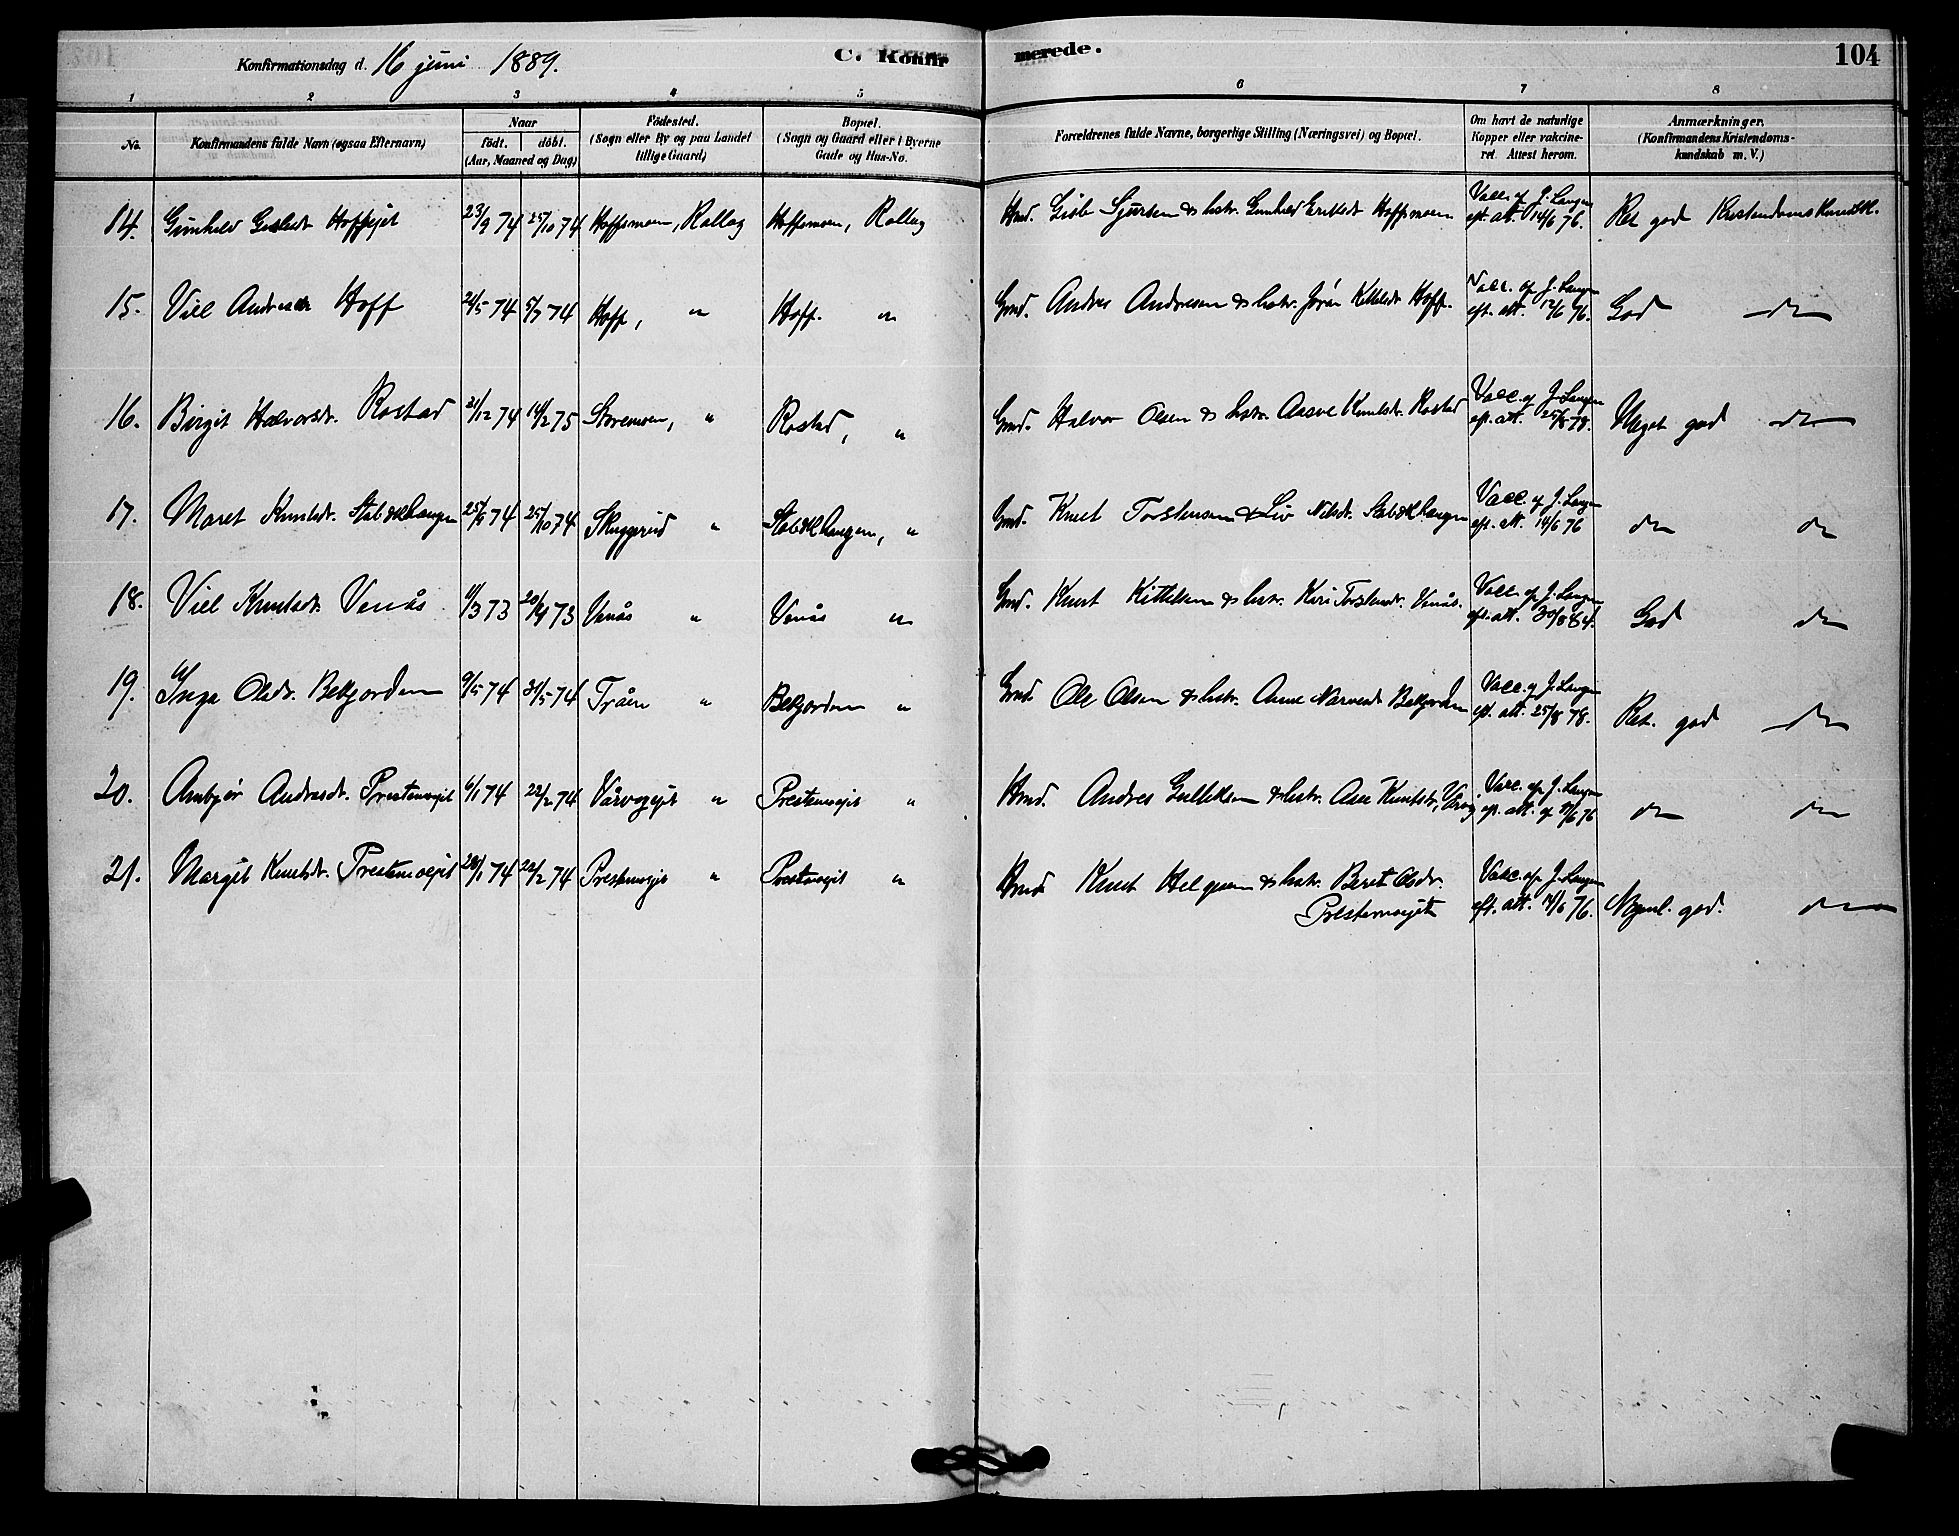 Konfirmationsdag d. 16 juni 1889.
C. Konfirmerede.
104
1 2 3 4 5 6 7 8
No.
Konfirmandens fulde Navn (ogsaa Efternavn)
Naar
födt. döbt.
(Aar, Maaned og Dag)
Födested.
(Sogn eller By og paa Landet
tillige Gaard)
Bopæl.
(Sogn og Gaard eller i Byerne
Gade og Hus-No.
Forældrenes fulde Navne, borgerlige Stilling (Næringsvei) og Bopæl.
Om havt de naturlige
Kopper eller vakcine-
ret. Attest herom.
Anmærkninger.
(Konfirmandens Kristendoms-
kundskab m. V.)
14. Gunhild 23/9 74 25/10 74 Hoffsmoen, Rollag Hoffsmoen, Rollag Hmd. Gisle Sjursen & hstr. Gunhild Hoffsmoen Vacc. af J. Langen eft. att. 14/6 76. Ret god Kristendomskundsk.
15. Viel Hoff 24/5 74 5/7 74 Hoff, " Hoff. " Gmd. Andres Andresen & hstr. Jørån Kittilsdt. Hoff. Vacc. af J. Langen eft. att. 12/6 76. God do
16. Birgit Halvorsdt. Rostad 21/12 74 14/2 75 Storemoen, " Rostad, " Gmd. Halvor Olsen & hstr. Knutsdt. Rostad Vacc. af J. Langen eft. att. 25/8 78. Meget god do
17. Maret Knutsdt. 25/9 74 25/10 74 Skuggerud " " Gmd. Knut Torstensen & Liv Nilsdt. Vacc. af J. Langen eft. att. 14/6 76 do do
18. Viel Knutsdt. Venås 11/3 73 20/4 73 Venås " Venås " Gmd. Knut Kittilsen & hstr. Kari Torstensdt. Venås. Vacc. af J. Langen eft. att. 30/8 84. God do
19. Inga Olsdt. Bekjorden 9/5 74 31/5 74 Tråen " Bekjorden " Gmd. Ole Olsen & hstr. Anne Bekjorden Vacc. af J. Langen eft. att. 25/8 78. Ret. god do
20. Ambjør Andresdt. Prestemoejet 6/1 74 22/2 74 " Prestemoejet " Hmd. Andres Gulliksen & hstr. Knutsdt., Vacc. af J. Langen eft. att. af 76 do do
21. Margit Knutsdt. Prestemoejet 28/1 74 22/2 74 Prestemoejet " Prestemoejet " Hmd. Knut Helgesen & hstr. Berit Olsdt. Vacc. af J. Langen
Prestemoejet eft. att. 14/6 76. god. do